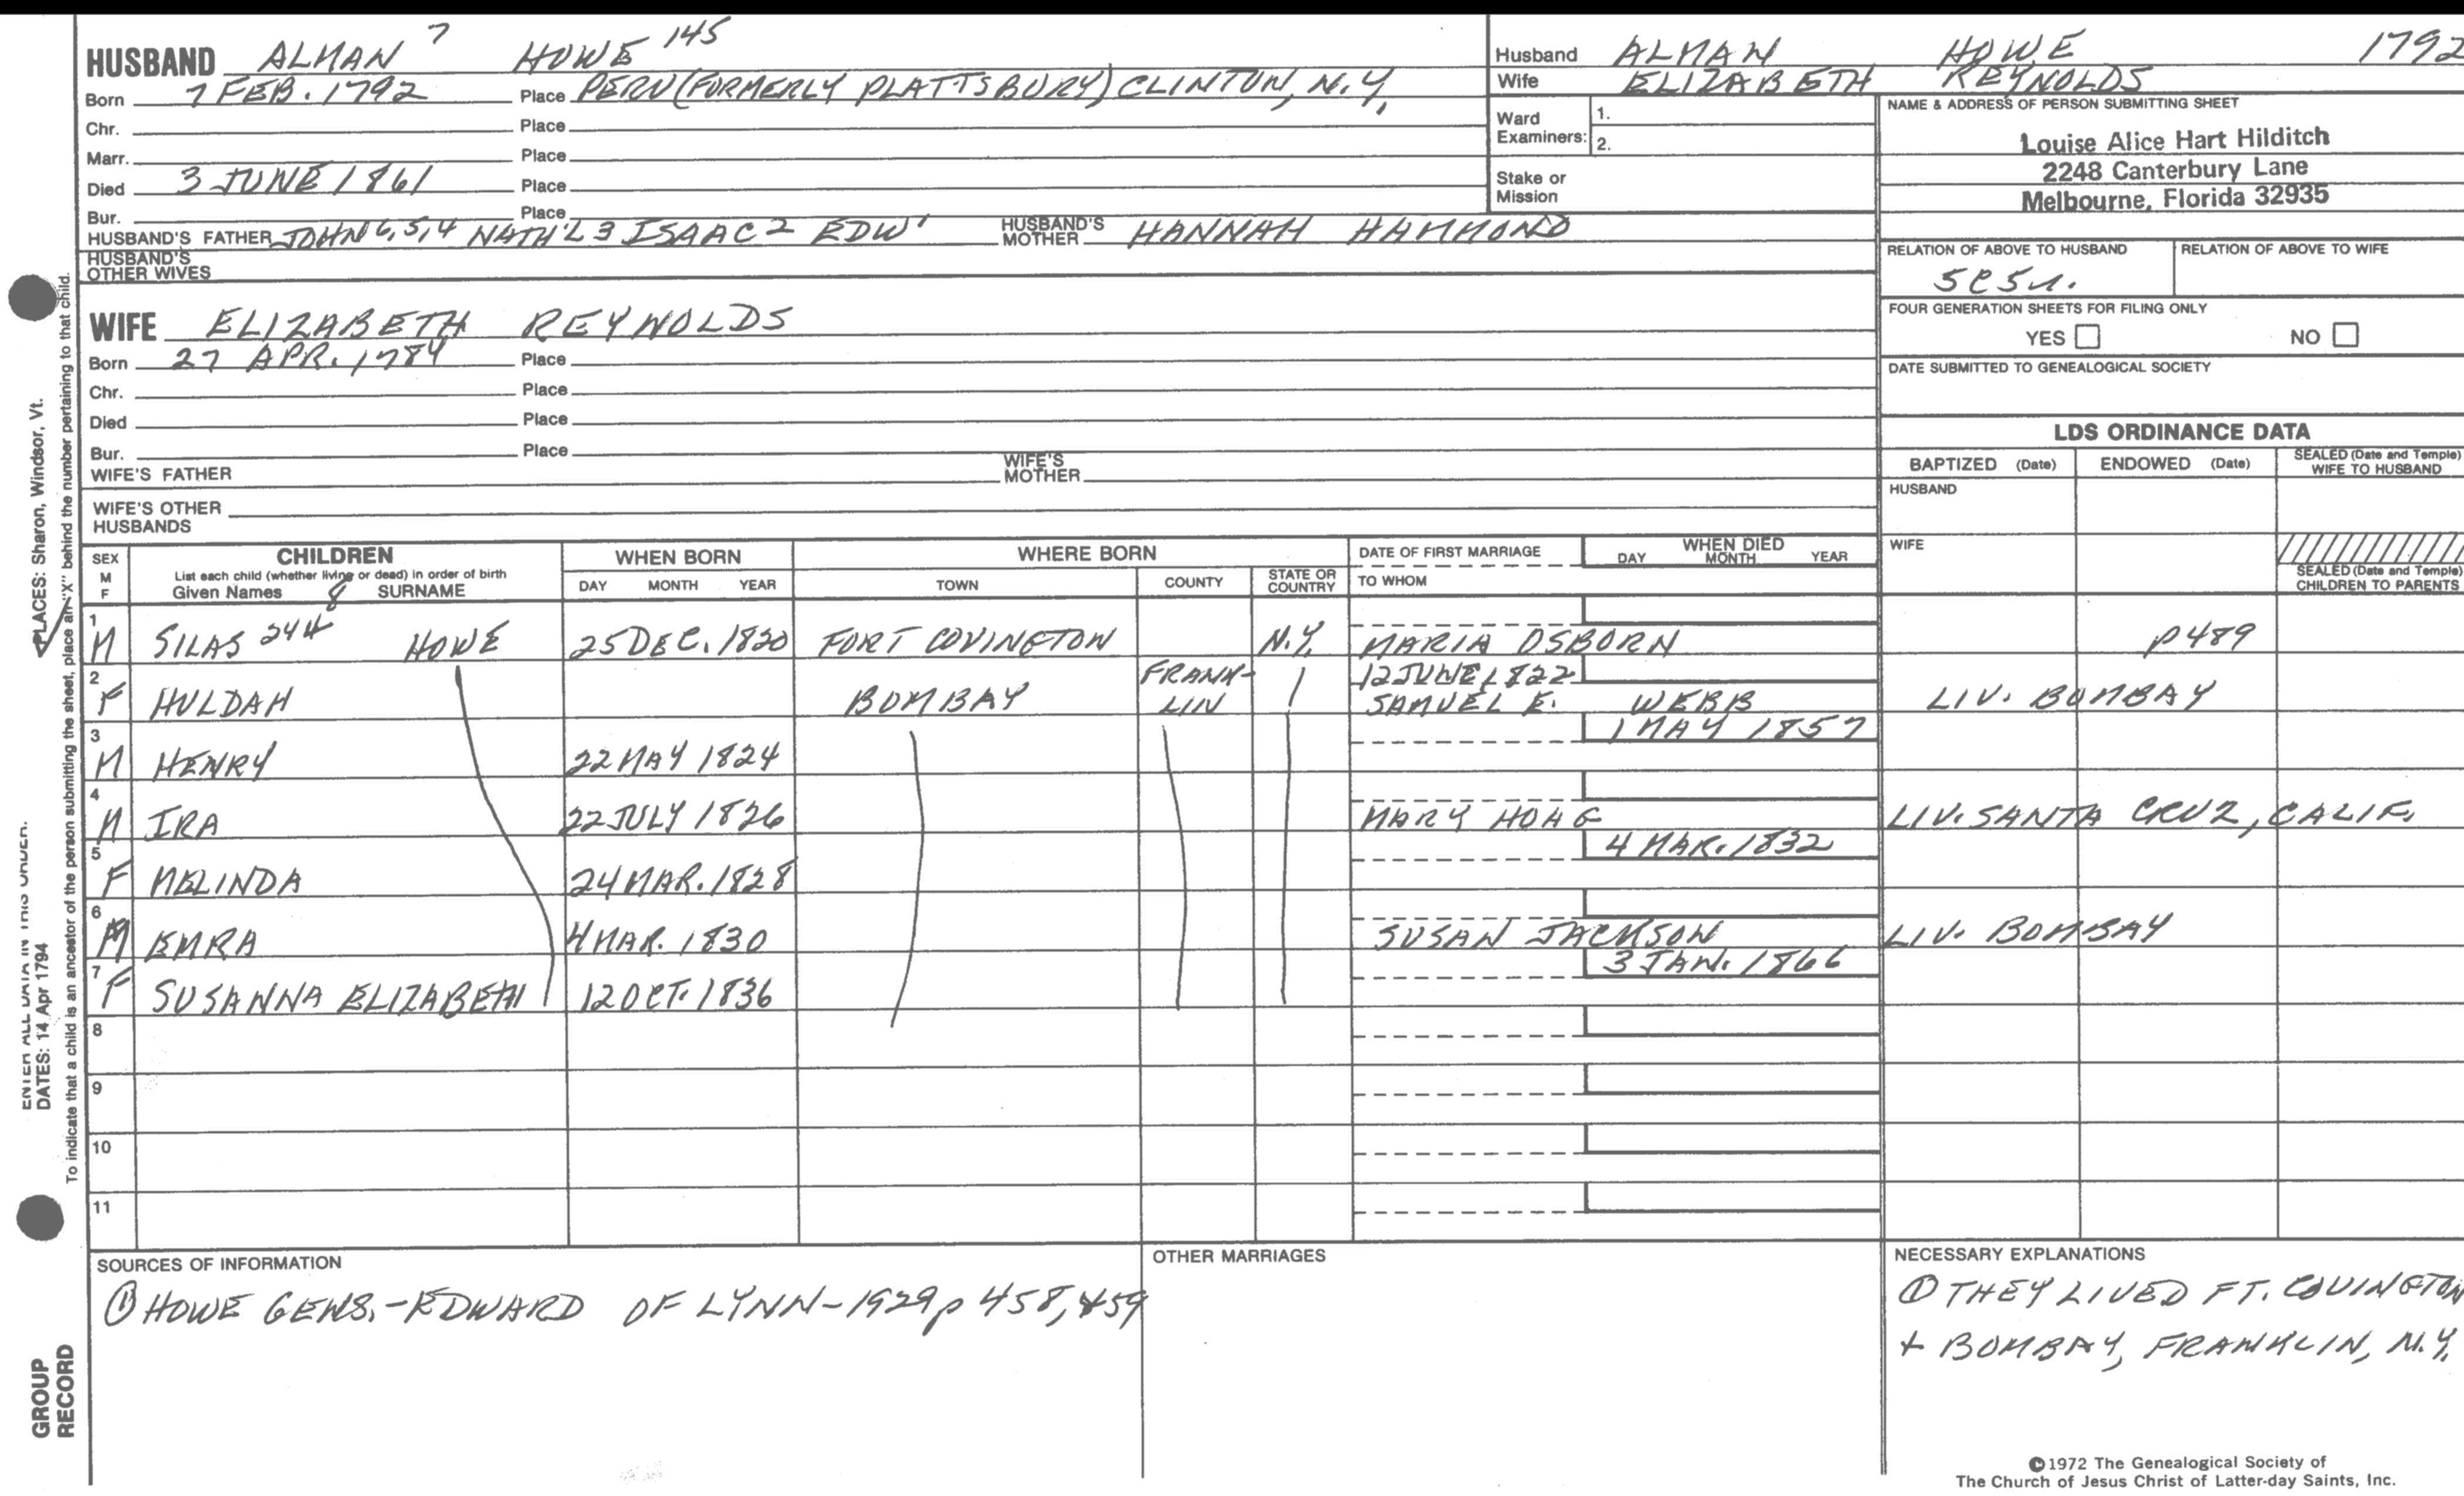 HUSBAND ALMAN 7 HOWE 145
Born 7 FEB. 1792 Place PERU (FORMERLY PLATTSBURY) CLINTON, N.Y.
Chr. Place
Marr. Place
Died 3 JUNE 1861 Place
Bur. Place
HUSBAND'S FATHER JOHN 6,5,4 NATH'L 3 ISAAC 2 EDW' HUSBAND'S MOTHER HANNAH HAMMOND
HUSBAND'S OTHER WIVES
WIFE ELIZABETH REYNOLDS
Born 27 APR. 1784 Place
Chr. Place
Died Place
Bur. Place
WIFE'S FATHER WIFE'S MOTHER
WIFE'S OTHER HUSBANDS
Husband ALMAN HOWE 1792
Wife ELIZABETH REYNOLDS
Ward Examiners: 1.
2.
Stake or Mission
NAME & ADDRESS OF PERSON SUBMITTING SHEET
Louise Alice Hart Hilditch
2248 Canterbury Lane
Melbourne, Florida 32935
RELATION OF ABOVE TO HUSBAND RELATION OF ABOVE TO WIFE
FOUR GENERATION SHEETS FOR FILING ONLY
YES NO
DATE SUBMITTED TO GENEALOGICAL SOCIETY
LDS ORDINANCE DATA
BAPTIZED (Date) ENDOWED (Date) SEALED (Date and Temple) WIFE TO HUSBAND
HUSBAND
WIFE
SEALED (Date and Temple) CHILDREN TO PARENTS
SEX M F CHILDREN WHEN BORN WHERE BORN DATE OF FIRST MARRIAGE WHEN DIED
List each child (whether living or dead) in order of birth DAY MONTH YEAR
Given Names 8 SURNAME DAY MONTH YEAR TOWN COUNTY STATE OR COUNTRY TO WHOM
1 M SILAS 244 HOWE 25 DEC. 1820 FORT COVINGTON N.Y. MARIA OSBORN p489
2 F HULDAH BOMBAY FRANK-LIN 12 JUNE 1822 SAMUEL E. WEBB LIV. BOMBAY
3 M HENRY 22 MAY 1824 1 MAY 1857
4 M IRA 22 JULY 1826 MARY HOAG LIV. SANTA CRUZ, CALIF.
5 F MELINDA 24 MAR. 1828 4 MAR. 1832
6 M EMRA 4 MAR. 1830 SUSAN JACKSON LIV. BOMBAY
7 F SUSANNA ELIZABETH 12 OCT. 1836 3 JAN. 1866
8
9
10
11
SOURCES OF INFORMATION
① HOWE GENS. - EDWARD OF LYNN - 1929 p 458, 459
OTHER MARRIAGES
NECESSARY EXPLANATIONS
① THEY LIVED FT. COVINGTON
+ BOMBAY, FRANKLIN, N.Y.
©1972 The Genealogical Society of
The Church of Jesus Christ of Latter-day Saints, Inc.
PLACES: Sharon, Windsor, Vt.
To indicate that a child is an ancestor of the person submitting the sheet, place an "X" behind the number pertaining to that child.
ENTER ALL DATA IN THIS ORDER:
DATES: 14 Apr 1794
GROUP
RECORD